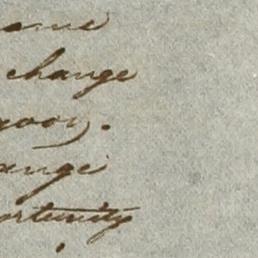 ame
change
goon.
ange
ortunity